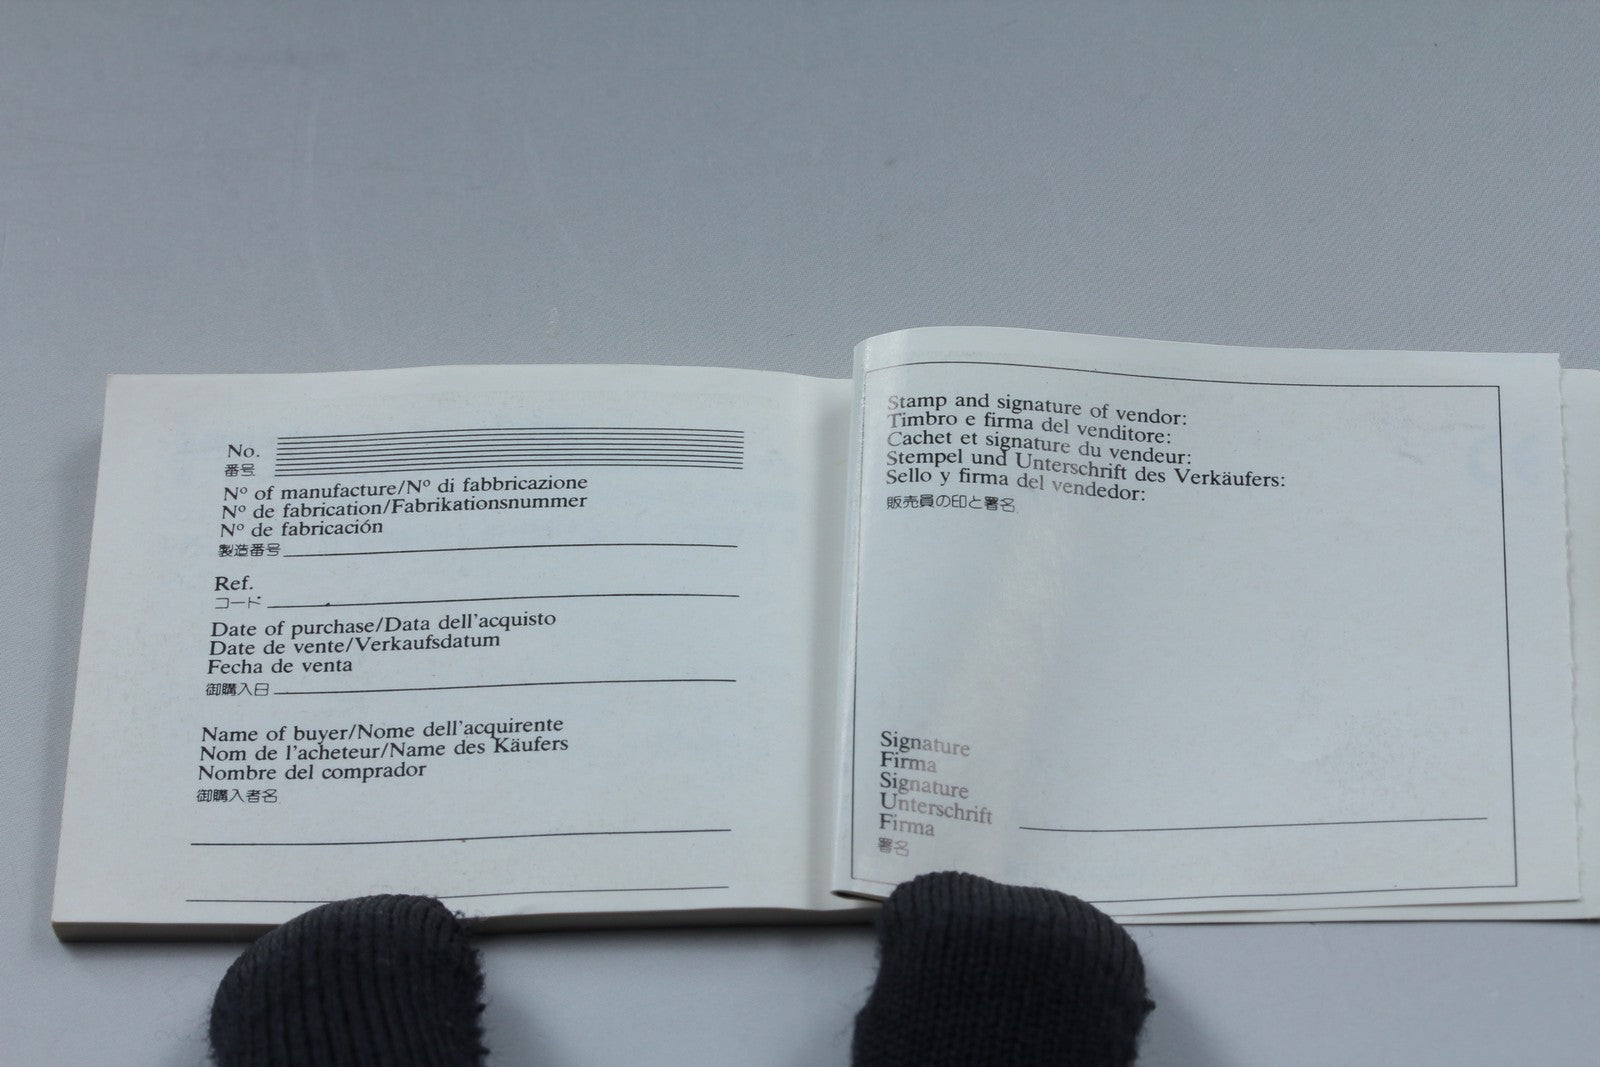 No.
番号
Nº of manufacture/Nº di fabbricazione
Nº de fabrication/Fabrikationsnummer
Nº de fabricación
製造番号
Ref.
コード
Date of purchase/Data dell'acquisto
Date de vente/Verkaufsdatum
Fecha de venta
御購入日
Name of buyer/Nome dell'acquirente
Nom de l'acheteur/Name des Käufers
Nombre del comprador
御購入者名
Stamp and signature of vendor:
Timbro e firma del venditore:
Cachet et signature du vendeur:
Stempel und Unterschrift des Verkäufers:
Sello y firma del vendedor:
販売員の印と署名
Signature
Firma
Signature
Unterschrift
Firma
署名